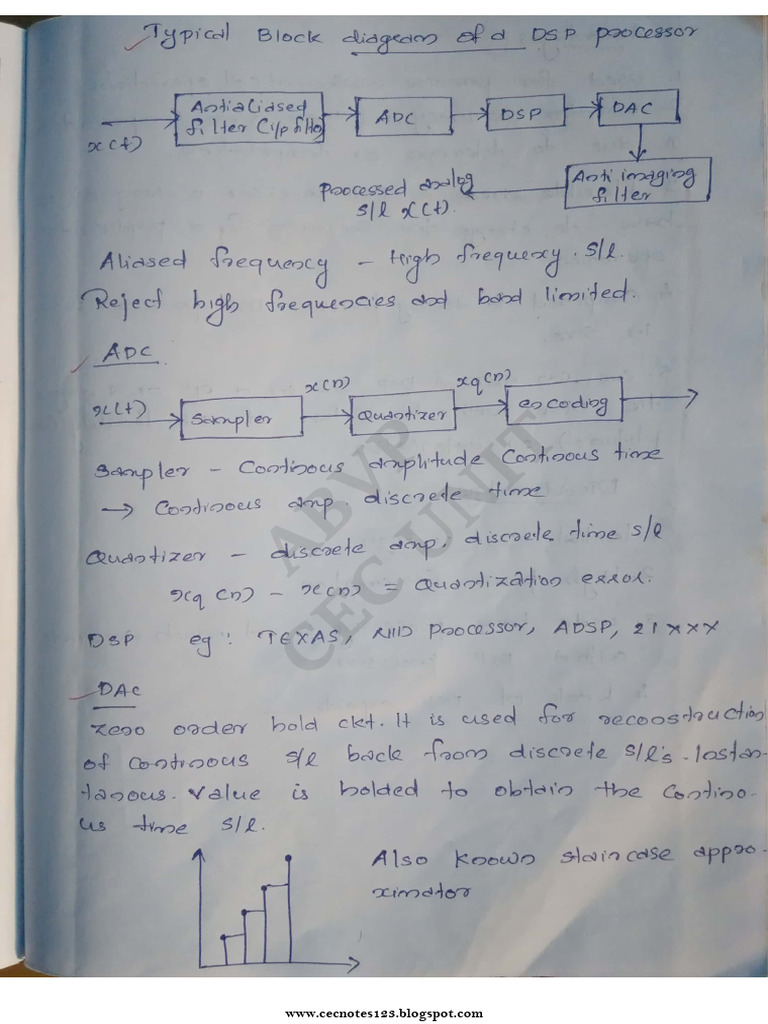 Typical Block diagram of a DSP processor
x(t)
Antialiased
filter (i/p filter)
ADC
DSP
DAC
Anti imaging
filter
processed analog
s/l x(t).
Aliased frequency - High frequency s/l.
Reject high frequencies and band limited.
ADC
x(t)
Sampler
x(n)
Quantizer
xq(n)
encoding
Sampler - Continous amplitude Continous time
→ Continous amp discrete time
Quantizer - discrete amp. discrete time s/l
xq(n) - x(n) = Quantization error.
DSP eg: TEXAS, processor, ADSP, 21XXX
DAC
zero order hold ckt. It is used for reconstruction
of continous s/l back from discrete s/l's. Instan-
tanous value is holded to obtain the Contino-
us time s/l.
Also known staircase appro-
ximator
ABVP
CEC UNIT
www.cecnotes123.blogspot.com